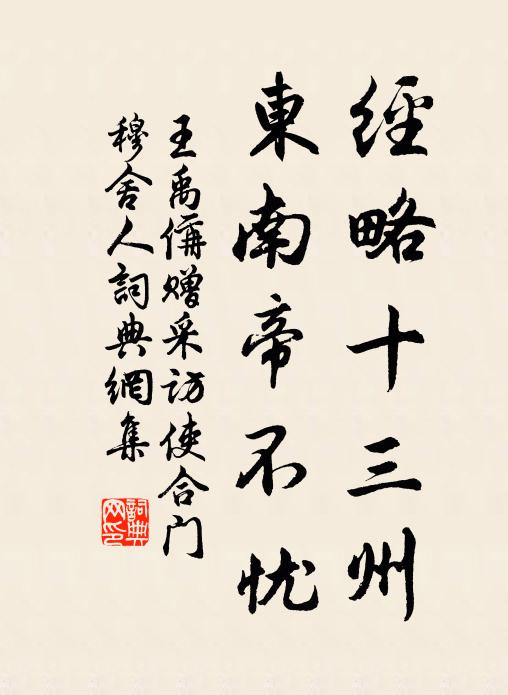 經略十三州
東南帝不忧
王禹偁赠采访使合门
穆舍人詞典網集
詞典网印